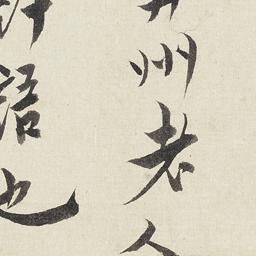 州老人
語也